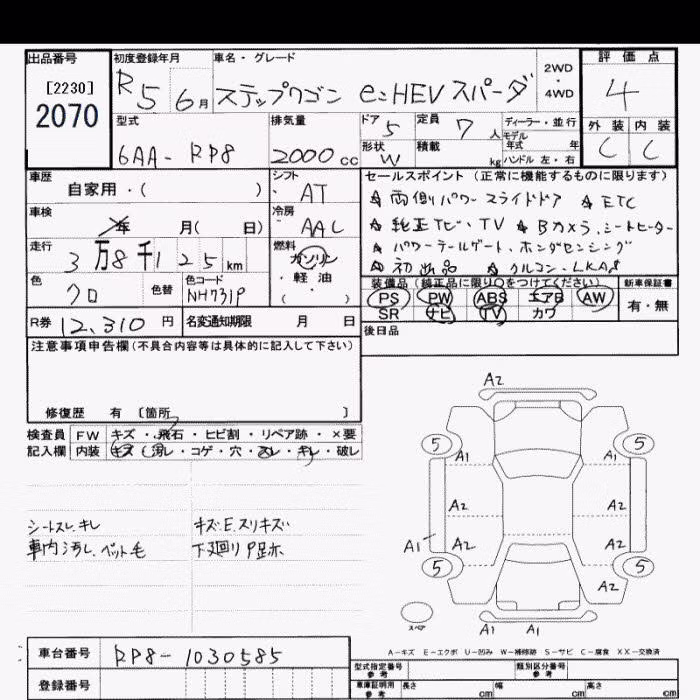 出品番号 初度登録年月 車名・グレード 2WD・4WD 評価点
[2230]
2070
R5 6月 ステップワゴン e:HEV スパーダ 4
型式 排気量 ドア 5 定員 7人 ディーラー・並行 外装 内装
6AA-RP8 2000cc 形状 W 積載 kg モデル年式 年 C C
ハンドル 左・右
車歴 シフト セールスポイント (正常に機能するものに限ります)
自家用・( ) AT ☆両側パワースライドドア ☆ETC
車検 年 月( 日) 冷房 AAC ☆純正ナビ・TV ☆Bカメラ、シートヒーター
走行 3万8千125km 燃料 ガソリン ☆パワーテールゲート、ホンダセンシング
・軽油 ☆初出品 ☆クルコン・LKAS
色 クロ 色替 色コード NH731P ( ) 装備品 (純正品に限り○をつけてください) 新車保証書
PS PW ABS エアB AW 有・無
SR ナビ TV カワ
R券 12,310円 名変通知期限 月 日 後日品
注意事項申告欄(不具合内容等は具体的に記入して下さい)
修復歴 有 〔箇所 〕
検査員記入欄 FW キズ・飛石・ヒビ割・リペア跡・×要
内装 キズ・汚レ・コゲ・穴・スレ・キレ・破レ
シートスレ.キレ キズ.E.スリキズ
車内汚レ.ペット毛 下廻りP跡
A2
5 5
A1 A1
A2 A2
A1 A2 A2
5 5
A2
スペア A1 A1
A-キズ E-エクボ U-凹み W-補修跡 S-サビ C-腐食 XX-交換済
車台番号 RP8-1030585
登録番号
型式指定番号参考 類別区分番号参考
車庫証明用参考 長さ cm 幅 cm 高さ cm